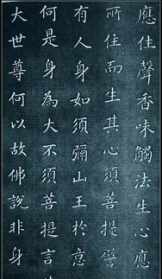 應住聲香味觸法生心應
所住而生其心須菩提譬
有人身如須彌山王於意
何是身為大不須菩提言
大世尊何以故佛說非身